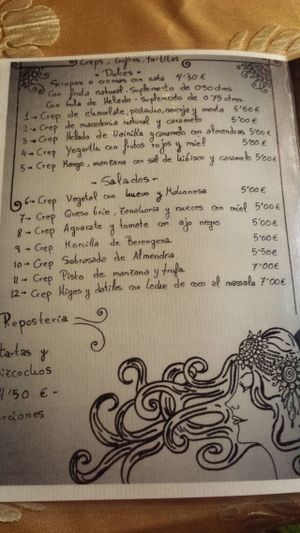 Creps, Gofres, tortitas
- Dulces -
Siropes o cremas con nata 4'30 €
Con fruta natural - Suplemento de 0'50 ctms.
Con bola de Helado - suplemento de 0'75 ctms.
1 → Crep de chocolate, pistacho, naranja y menta 5'50 €
2 → Crep de macedonia natural y caramelo 5'00 €
3 → Crep Helado de Vainilla y caramelo con almendras 5'00 €
4 → Crep Yogurth con frutos rojos y miel 5'00 €
5 → Crep Mango, manzana con sal de hibisco y caramelo 5'50 €
- Salados -
6 → Crep Vegetal con huevo y Mahonesa 5'00 €
7 → Crep Queso brie, Zanahoria y nueces con miel 5'00 €
8 → Crep Aguacate y tomate con ajo negro 5'00 €
9 → Crep Morcilla de Berengena 5'00 €
10 → Crep Sobrasada de Almendra 5'50 €
11 → Crep Pisto de manzana y trufa 7'00 €
12 → Crep Higos y datiles con leche de coco al massala 7'00 €
Repostería
tartas y
bizcochos
4'50 € -
porciones